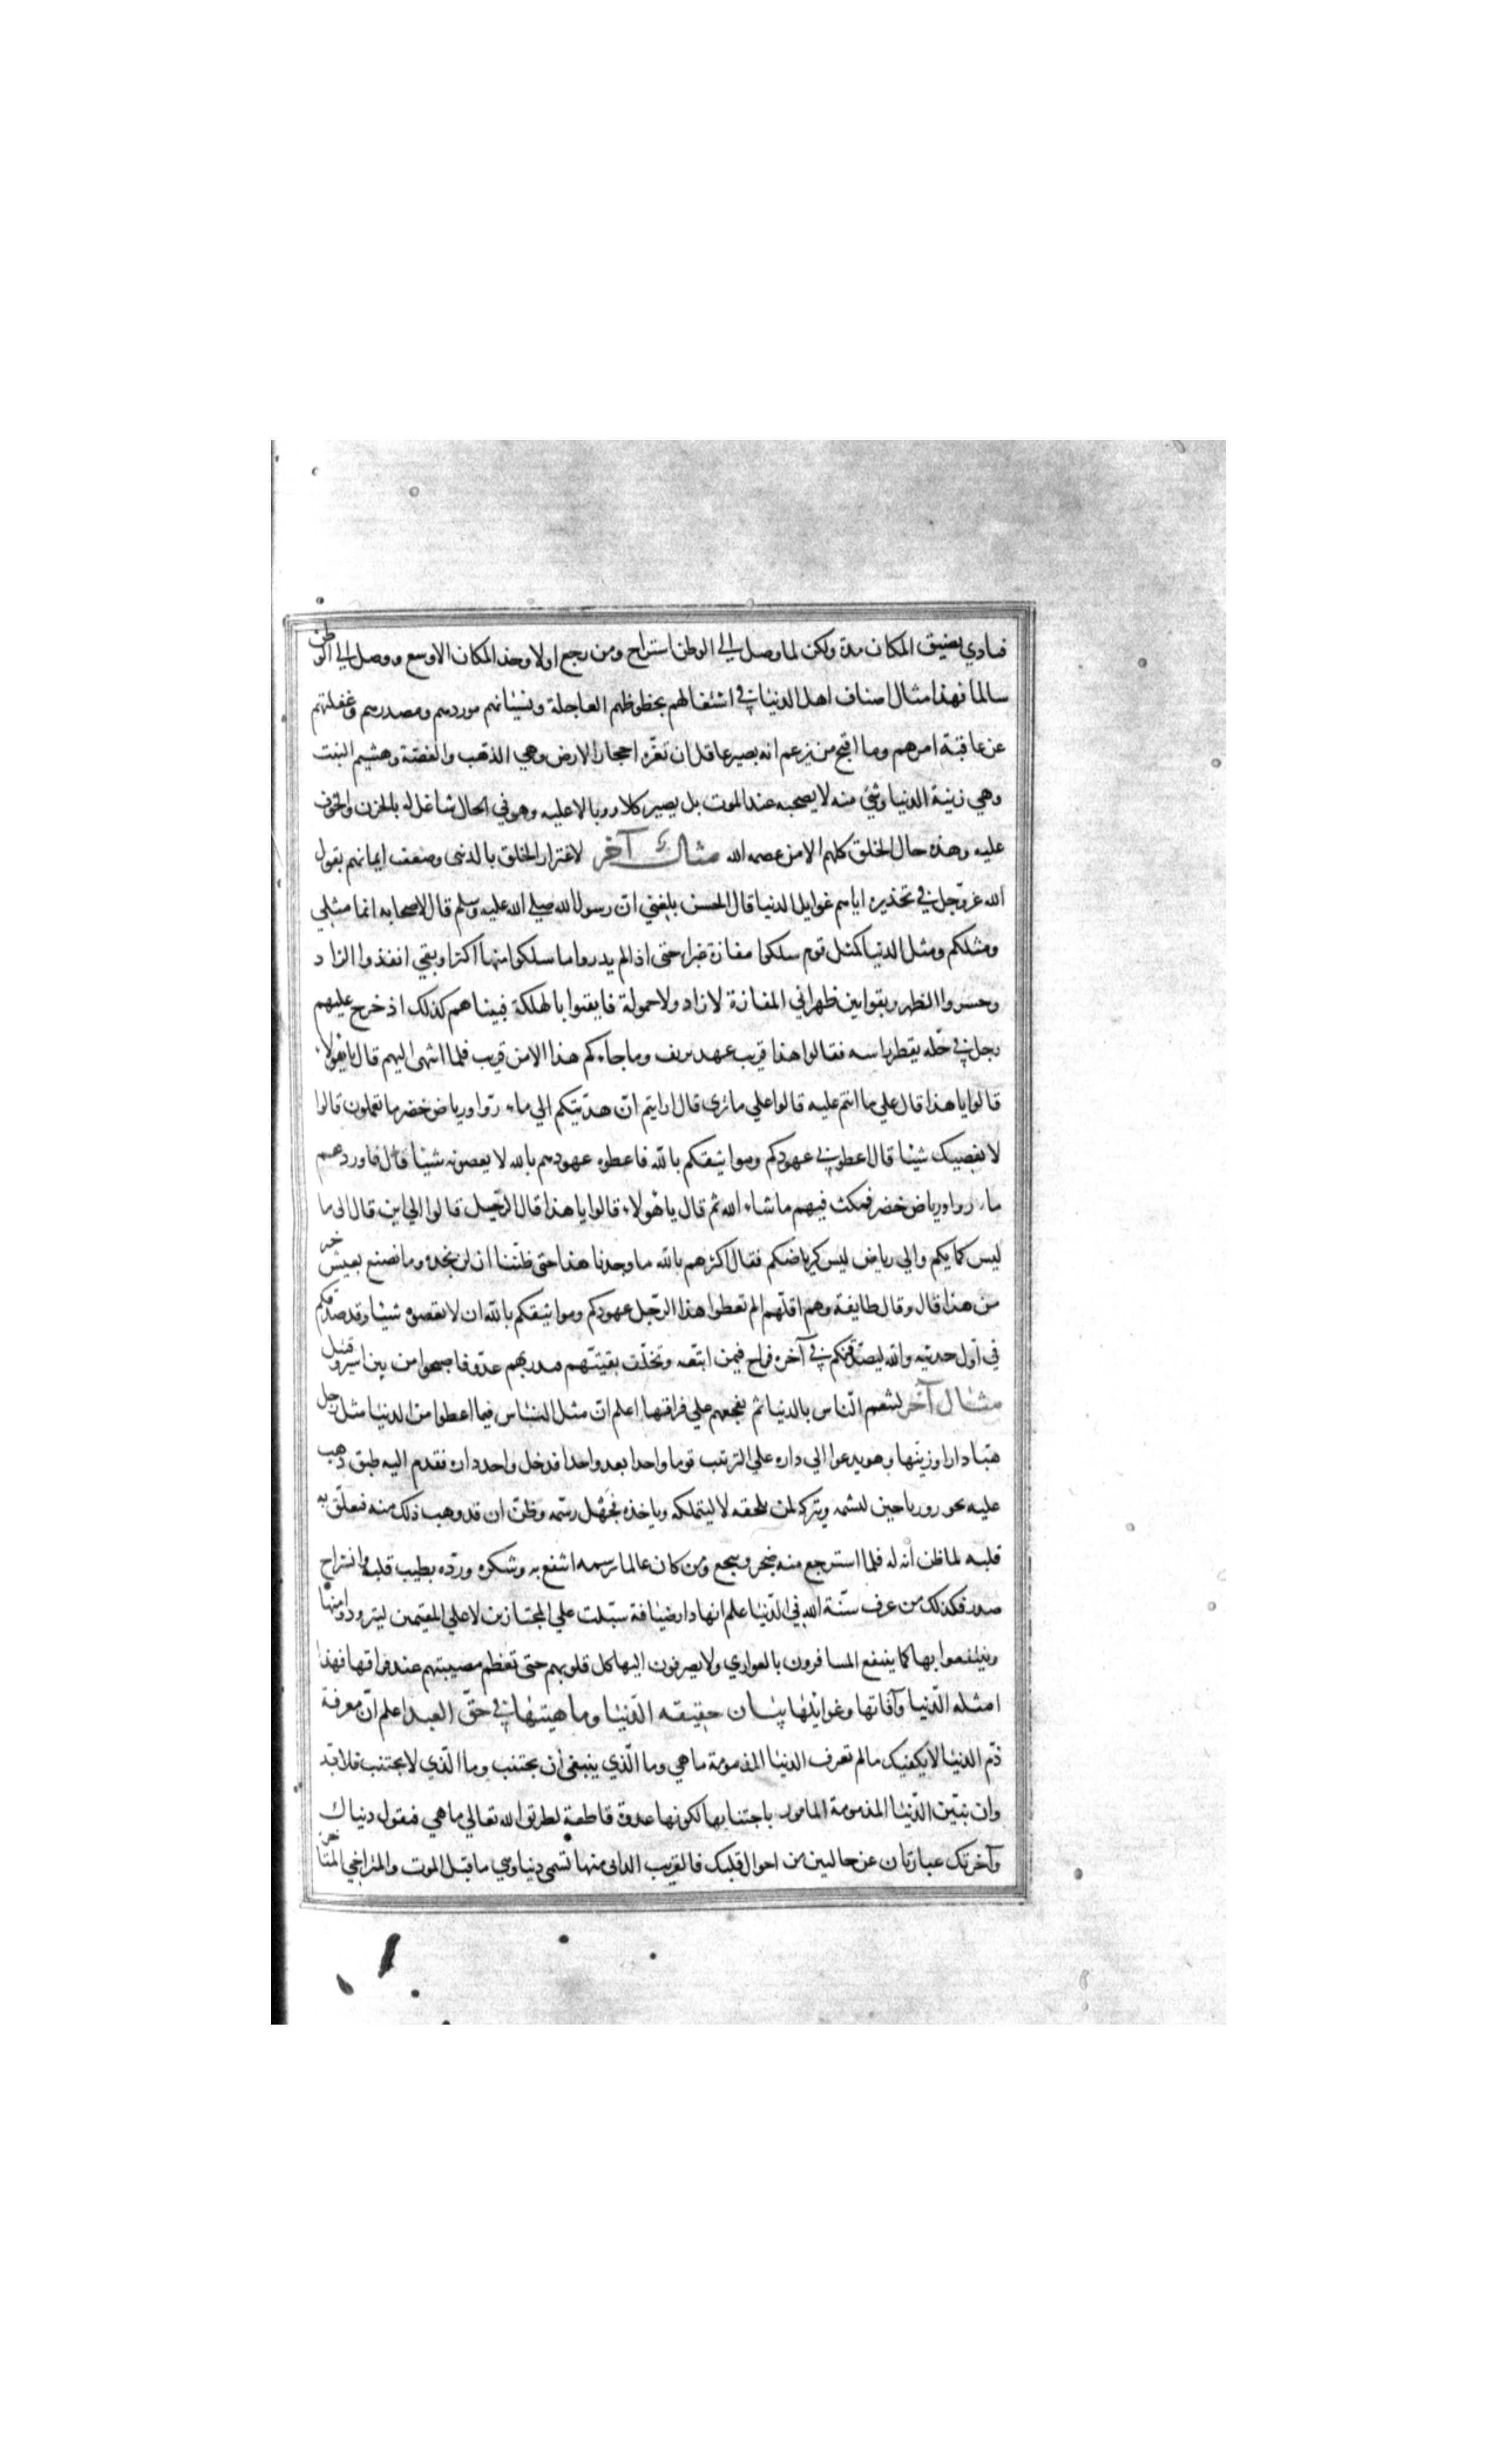 فتاذي بضيق المكان مدة ولكن لما وصل الي الوطن استراح ومن رجع اولا وجد المكان الاوسع ووصل الي الوطن
سالما فهذا مثال اصناف اهل الدنيا في اشتغالهم بحظوظهم العاجلة ونسيانهم موردهم ومصدرهم وغفلتهم
عن عاقبة امرهم وما اقبح من يزعم انه بصير عاقل ان تغره احجار الارض وهي الذهب والفضة وهشيم النبت
وهي زينة الدنيا وشئ منه لا يصحبه عند الموت بل يصير كلا ووبالا عليه وهو في الحال شاغل له بالحزن والخوف
عليه وهذه حال الخلق كلهم الا من عصمه الله مثال آخر لاغترار الخلق بالدنيى وضعف ايمانهم بقول
الله عزّ وجل في تحذيره اياهم غوايل الدنيا قال الحسن بلغني انّ رسول الله صلي الله عليه وسلم قال لاصحابه انما مثلي
ومثلكم ومثل الدنيا كمثل قوم سلكوا مفازة غبراء حتى اذا لم يدروا ما سلكوا منها اكثر او بقي انفذوا الزاد
وحسروا الظهر وبقوا بين ظهراني المفازة لا زاد ولا حمولة فايقنوا بالهلكة فبينا هم كذلك اذ خرج عليهم
رجل في حلّه يقطر راسه فقالوا هذا قريب عهد بريف وما جاءكم هذا الا من قريب فلما انتهى اليهم قال يا هؤلاء
قالوا يا هذا قال علي ما انتم عليه قالوا علي ما ترى قال ارايتم انّ هديتكم الي ماء روّا ورياض خضر ما تعملون قالوا
لا نعصيك شيئا قال اعطوني عهودكم ومواثيقكم بالله فاعطوه عهودهم بالله لا يعصونه شيئا قال فاوردهم
ماء روا ورياض خضر فمكث فيهم ما شاء الله ثم قال يا هؤلاء قالوا يا هذا قال الرّحيل قالوا الي اين قال الى ما
ليس كمايكم والي رياض ليس كرياضكم فقال اكثرهم بالله ما وجدنا هذا حتى ظننّا ان لن نجده وما نصنع بعيش خير
من هذا قال وقال طايفة وهم اقلّهم الم تعطوا هذا الرّجل عهودكم ومواثيقكم بالله ان لا تعصوه شيئا وقد صدّقكم
في اوّل حديثه والله ليصدّقنّكم في آخره فراح فيمن اتّبعه وتخلّف بقيّتهم فبدر بهم عدوّ فاصبحوا من بين اسير وقتيل
مثال آخر لتنعم النّاس بالدنيا ثم تفجعهم علي فراقها اعلم انّ مثل النّاس فيما اعطوا من الدنيا مثل رجل
هيّا دارا وزيّنها وهو يدعوا الي داره علي الترتيب قوما واحدا بعد واحدا فدخل واحد داره فقدم اليه طبق ذهب
عليه بخور ورياحين ليشمه ويتركه لمن يلحقه لا ليتملكه وياخذه فجهل رسمه وظنّ ان قد وهب ذلك منه فتعلّق به
قلبه لما ظن انه له فلما استرجع منه ضجر وتفجع ومن كان عالما برسمه انتفع به وشكره وردّه بطيب قلب وانشراح
صدر فكذلك من عرف سنّة الله في الدّنيا علم انها دار ضيافة سبّلت علي المجتازين لا علي المقيمين ليتزودوا منها
وينتفعوا بها كما ينتفع المسافرون بالعواري ولا يصرفون اليها كل قلوبهم حتى تعظم مصيبتهم عند فراقها فهذا
امثله الدّنيا وآفاتها وغوايلها بيان حقيقه الدّنيا وماهيتها في حقّ العبد اعلم انّ معرفة
ذمّ الدنيا لا يكفيك ما لم تعرف الدنيا المذمومة ما هي وما الّذي ينبغي أن يجتنب وما الّذي لا يجتنب فلا بدّ
وان نبيّن الدّنيا المذمومة المامور باجتنابها لكونها عدوّة قاطعة لطريق الله تعالي ما هي فنقول دنياك
وآخرتك عبارتان عن حالين من احوال قلبك فالقريب الدانى منها تسمى دنيا وهي ما قبل الموت والمتراخي المتاخر